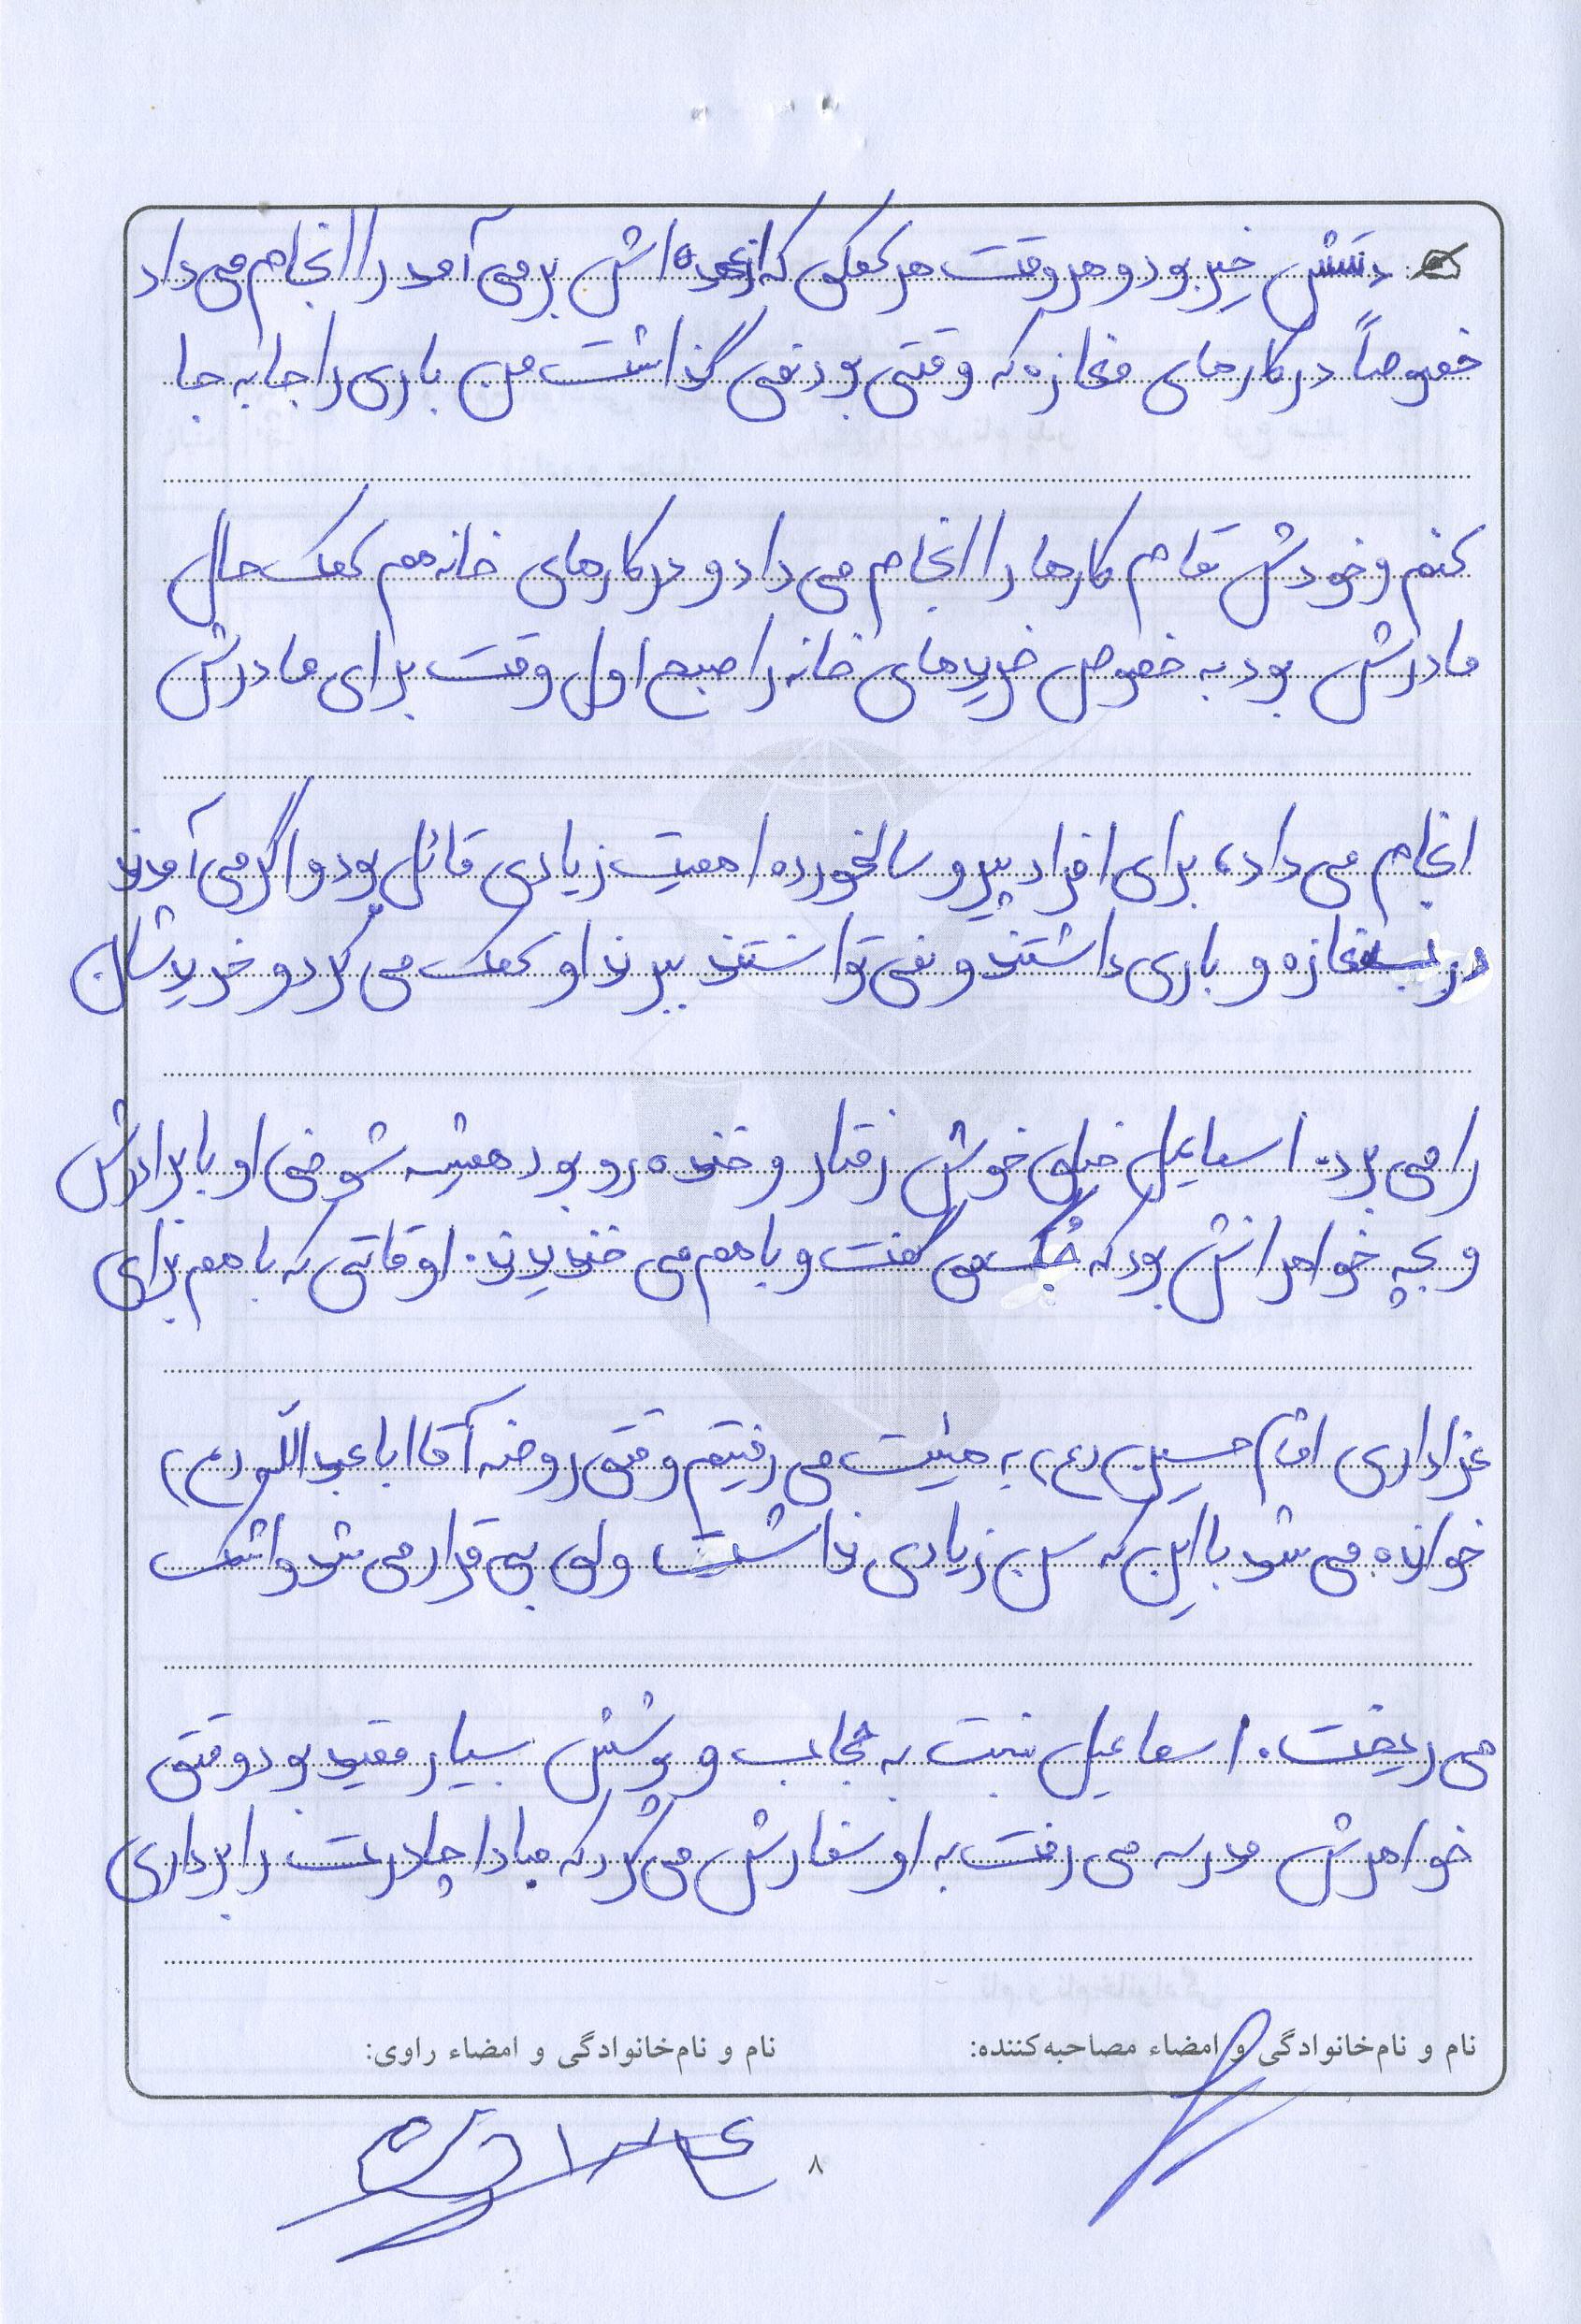 دستش خیر بود و هر وقت هر کمکی که از عهده اش بر می آمد را انجام می داد
خصوصاً در کارهای مغازه که وقتی بود نمی گذاشت من باری را جا به جا
کنم و خودش تمام کارها را انجام می داد و در کارهای خانه هم کمک حال
مادرش بود به خصوص خریدهای خانه را صبح اول وقت برای مادرش
انجام می داد، برای افراد پیر و سالخورده اهمیت زیادی قائل بود و اگر می آمدند
درب مغازه و باری داشتند و نمی توانستند ببرند او کمک می کرد و خریدشان
را می برد. اسماعیل خیلی خوش رفتار و خنده رو بود همیشه شوخی او با برادرش
و بچه خواهرانش بود که جُک می گفت و با هم می خندیدند. اوقاتی که با هم برای
عزاداری امام حسین (ع) به هئیت می رفتیم وقتی روضه آقا اباعبدالله (ع)
خوانده می شد با این که سن زیادی نداشت ولی بی قرار می شد و اشک
می ریخت. اسماعیل نسبت به حجاب و پوشش بسیار مقید بود وقتی
خواهرش مدرسه می رفت به او سفارش می کرد که مبادا چادرت را برداری
نام و نام‌خانوادگی و امضاء مصاحبه‌کننده:
نام و نام‌خانوادگی و امضاء راوی:
۸